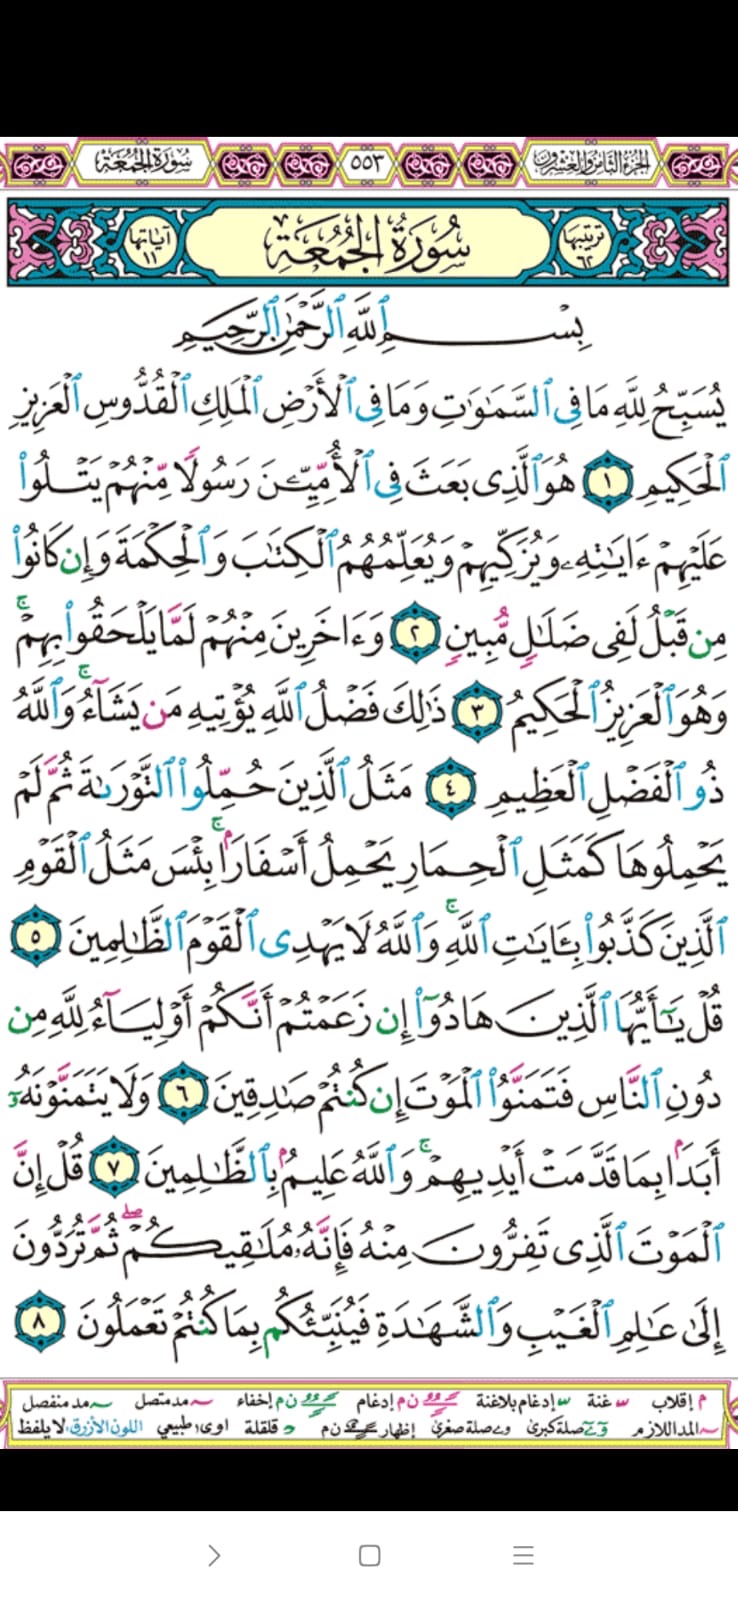 الجزء الثامن والعشرون ٥٥٣ سورة الجمعة
ترتيبها ٦٢ سُورَةُ الجُمُعَةِ آياتها ١١
بِسْمِ ٱللَّهِ ٱلرَّحْمَٰنِ ٱلرَّحِيمِ
يُسَبِّحُ لِلَّهِ مَا فِى ٱلسَّمَٰوَٰتِ وَمَا فِى ٱلْأَرْضِ ٱلْمَلِكِ ٱلْقُدُّوسِ ٱلْعَزِيزِ
ٱلْحَكِيمِ ١ هُوَ ٱلَّذِى بَعَثَ فِى ٱلْأُمِّيِّـۧنَ رَسُولًا مِّنْهُمْ يَتْلُوا۟
عَلَيْهِمْ ءَايَٰتِهِۦ وَيُزَكِّيهِمْ وَيُعَلِّمُهُمُ ٱلْكِتَٰبَ وَٱلْحِكْمَةَ وَإِن كَانُوا۟
مِن قَبْلُ لَفِى ضَلَٰلٍ مُّبِينٍ ٢ وَءَاخَرِينَ مِنْهُمْ لَمَّا يَلْحَقُوا۟ بِهِمْ ۚ
وَهُوَ ٱلْعَزِيزُ ٱلْحَكِيمُ ٣ ذَٰلِكَ فَضْلُ ٱللَّهِ يُؤْتِيهِ مَن يَشَآءُ ۚ وَٱللَّهُ
ذُو ٱلْفَضْلِ ٱلْعَظِيمِ ٤ مَثَلُ ٱلَّذِينَ حُمِّلُوا۟ ٱلتَّوْرَىٰةَ ثُمَّ لَمْ
يَحْمِلُوهَا كَمَثَلِ ٱلْحِمَارِ يَحْمِلُ أَسْفَارًۢا ۚ بِئْسَ مَثَلُ ٱلْقَوْمِ
ٱلَّذِينَ كَذَّبُوا۟ بِـَٔايَٰتِ ٱللَّهِ ۚ وَٱللَّهُ لَا يَهْدِى ٱلْقَوْمَ ٱلظَّٰلِمِينَ ٥
قُلْ يَٰٓأَيُّهَا ٱلَّذِينَ هَادُوٓا۟ إِن زَعَمْتُمْ أَنَّكُمْ أَوْلِيَآءُ لِلَّهِ مِن
دُونِ ٱلنَّاسِ فَتَمَنَّوُا۟ ٱلْمَوْتَ إِن كُنتُمْ صَٰدِقِينَ ٦ وَلَا يَتَمَنَّوْنَهُۥٓ
أَبَدًۢا بِمَا قَدَّمَتْ أَيْدِيهِمْ ۚ وَٱللَّهُ عَلِيمٌۢ بِٱلظَّٰلِمِينَ ٧ قُلْ إِنَّ
ٱلْمَوْتَ ٱلَّذِى تَفِرُّونَ مِنْهُ فَإِنَّهُۥ مُلَٰقِيكُمْ ۖ ثُمَّ تُرَدُّونَ
إِلَىٰ عَٰلِمِ ٱلْغَيْبِ وَٱلشَّهَٰدَةِ فَيُنَبِّئُكُم بِمَا كُنتُمْ تَعْمَلُونَ ٨
م إقلاب غنة إدغام بلاغنة ن م إدغام ن م إخفاء مد متصل مد منفصل
المد اللازم صلة كبرى صلة صغرى إظهار ن م قلقلة اوى طبيعي اللون الأزرق لا يلفظ